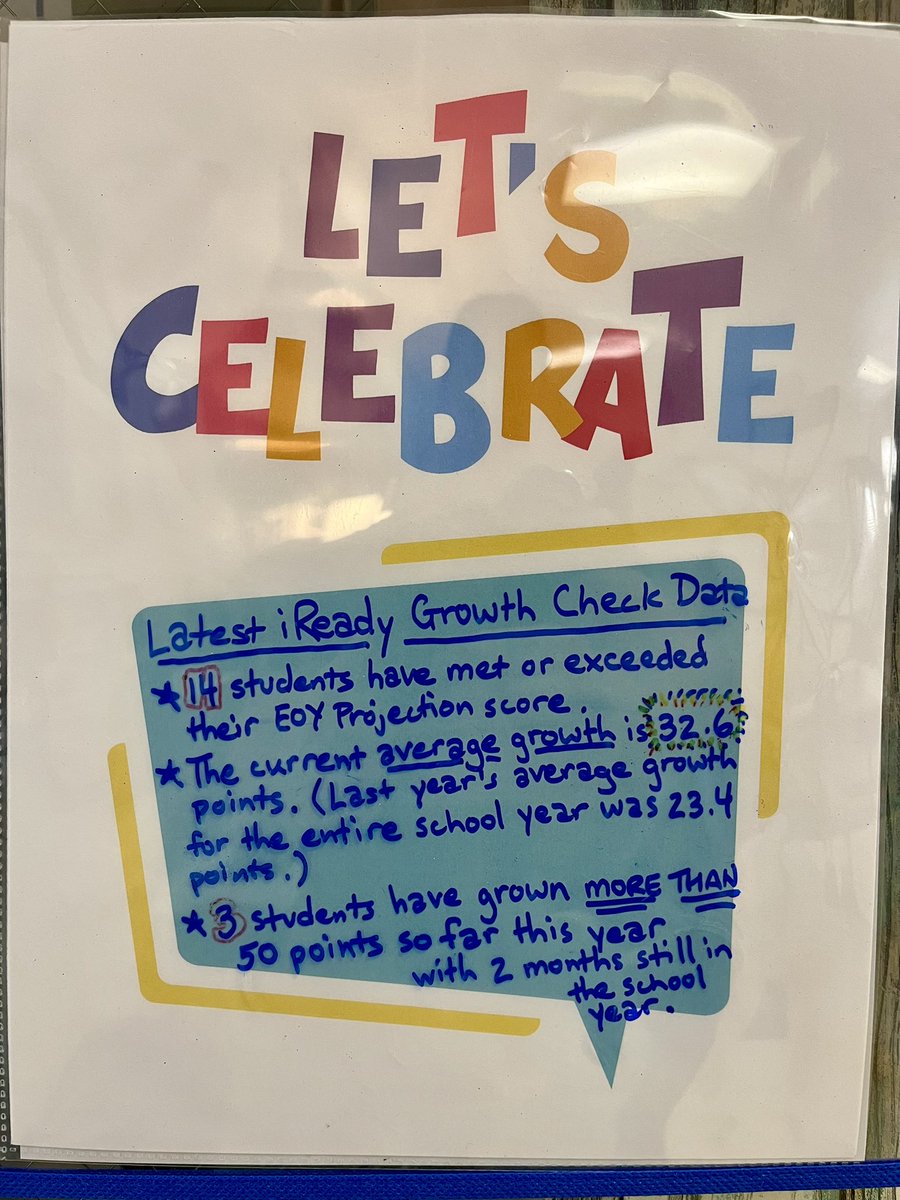 LET'S
CELEBRATE
Latest iReady Growth Check Data
★ 14 students have met or exceeded
their EOY Projection score.
★ The current average growth is 32.6
points. (Last year's average growth
for the entire school year was 23.4
points.)
★ 3 students have grown MORE THAN
50 points so far this year
with 2 months still in
the school
year.